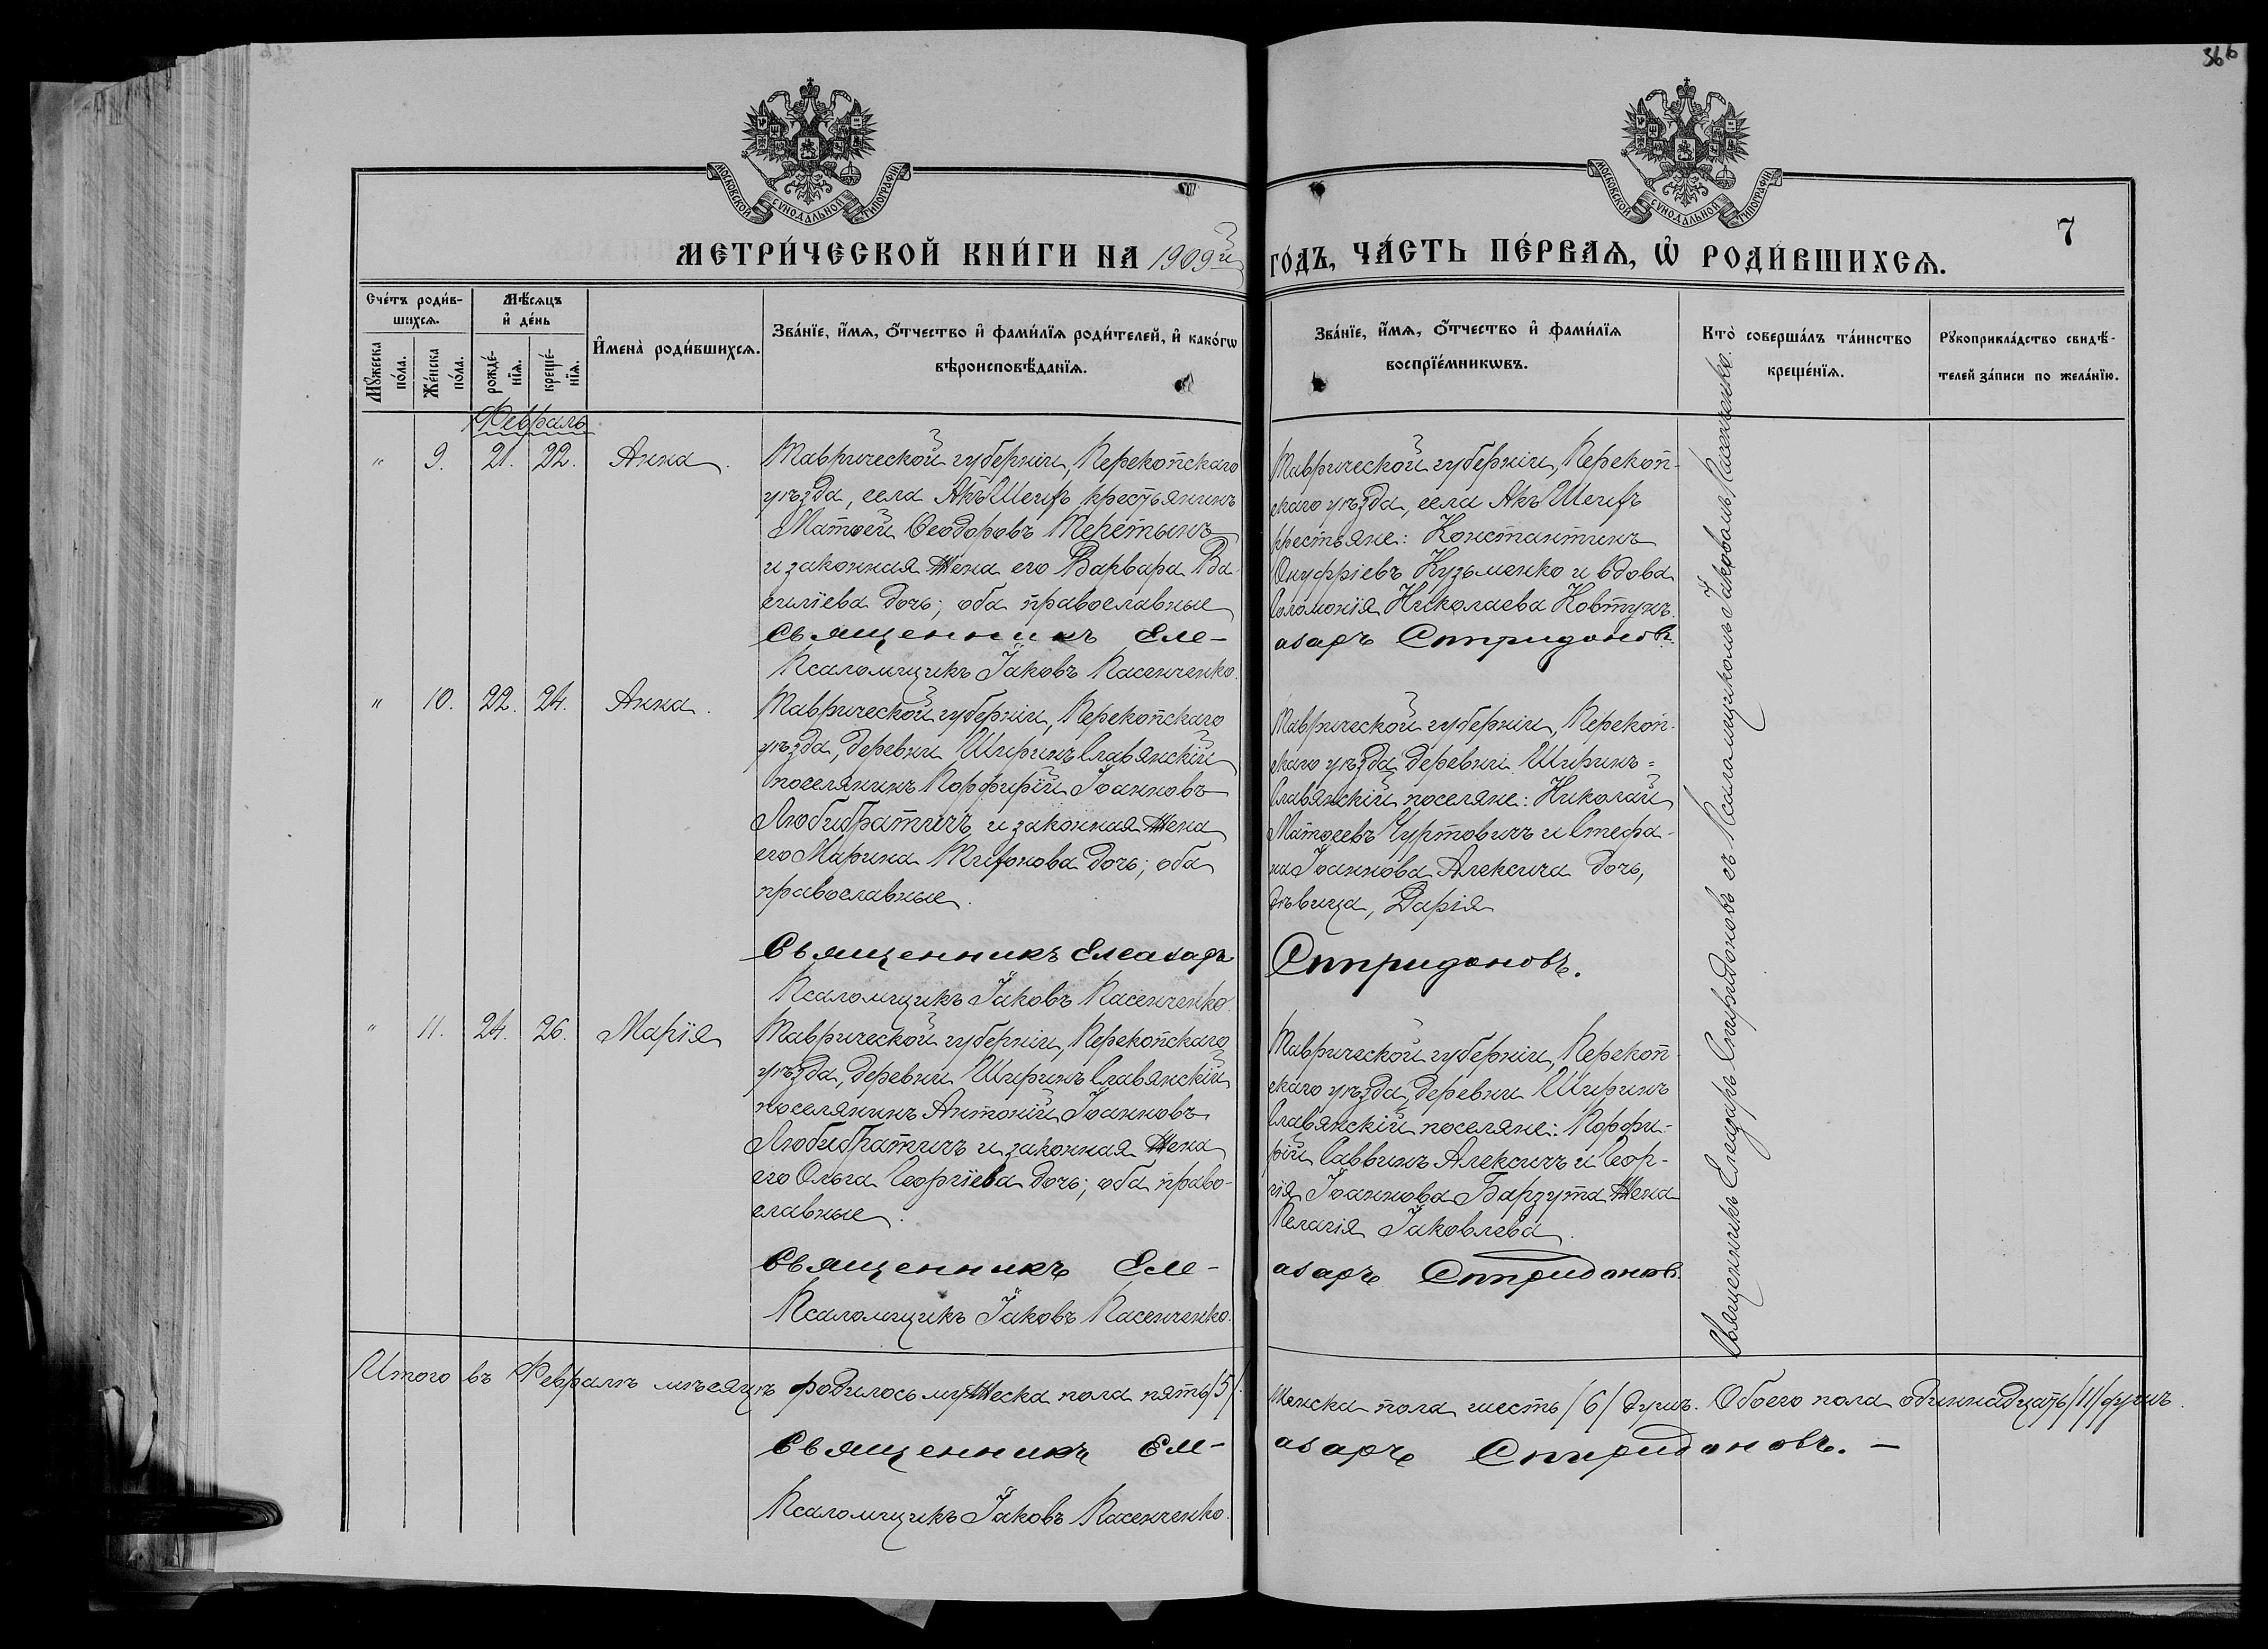 366
МОСКОВСКОЙ СѴНОДАЛЬНОЙ ТИПОГРАФІИ
МОСКОВСКОЙ СѴНОДАЛЬНОЙ ТИПОГРАФІИ
7
МЕТРИ́ЧЕСКОЙ КНИ́ГИ НА 1909й ГО́ДЪ, ЧА́СТЬ ПЕ́РВАѦ, Ѡ҆ РОДИ́ВШИХСѦ.
Сче́тъ роди́в-
шихсѧ.
Мѣ́сѧцъ
и҆ де́нь
Мꙋ́жеска
по́ла.
Же́нска
по́ла.
рожде́-
нїѧ.
креще́-
нїѧ.
И҆мена̀ роди́вшихсѧ.
Зва́нїе, и҆́мѧ, ѻ҆́тчество и҆ фами́лїѧ роди́телей, и҆ како́гѡ
вѣроисповѣ́данїѧ.
Зва́нїе, и҆́мѧ, ѻ҆́тчество и҆ фами́лїѧ
воспрїе́мникѡвъ.
Кто̀ соверша́лъ та́инство
креще́нїѧ.
Рꙋкоприкла́дство свидѣ́-
телей за́писи по жела́нїю.
Февраль
" 9. 21. 22. Анна.
Таврической губерніи, Перекопскаго
уѣзда, села Акъ Шеихъ крестьянинъ
Матѳей Ѳеодоровъ Перетынъ
и законная жена его Варвара Ва-
силіева дочь; оба православные
Священникъ Еле-
Псаломщикъ Іаковъ Пасенченко.
Таврической губерніи, Перекоп-
скаго уѣзда, села Акъ Шеихъ
крестьяне: Константинъ
Онуфріевъ Кузьменко и вдова
Соломонія Николаева Ковтунъ
азаръ Спиридоновъ.
" 10. 22. 24. Анна.
Таврической губерніи, Перекопскаго
уѣзда, деревни Ширинъ Славянскій
поселянинъ Порфирій Іоанновъ
Любибратичъ и законная жена
его Марина Тихонова дочь; оба
православные.
Священникъ Елеазаръ
Псаломщикъ Іаковъ Пасенченко.
Таврической губерніи, Перекоп-
скаго уѣзда деревни Ширинъ=
Славянскій поселяне: Николай
Матѳеевъ Чуртовичъ и Стефа-
на Іоаннова Алексича дочь,
дѣвица, Дарія
Спиридоновъ.
" 11. 24. 26. Марія
Таврической губерніи, Перекопскаго
уѣзда, деревни Ширинъ Славянскій
поселянинъ Антоній Іоанновъ
Любибратичъ и законная жена
его Ольга Георгіева дочь; оба право-
славные.
Священникъ Еле-
Псаломщикъ Іаковъ Пасенченко.
Таврической губерніи, Перекоп-
скаго уѣзда, деревни Ширинъ
Славянскій поселяне: Порфи-
рій Саввинъ Алексичъ и Геор-
гія Іоаннова Барзута жена
Пелагія Іаковлева.
азаръ Спиридоновъ.
Священникъ Елеазаръ Спиридоновъ съ Псаломщикомъ Іаковомъ Пасенченко.
Итого въ Февралѣ мѣсяцѣ родилось мужеска пола пять /5/. Женска пола шесть /6/ душъ. Обоего пола одиннадцать /11/ душъ.
Священникъ Еле- азаръ Спиридоновъ. —
Псаломщикъ Іаковъ Пасенченко.